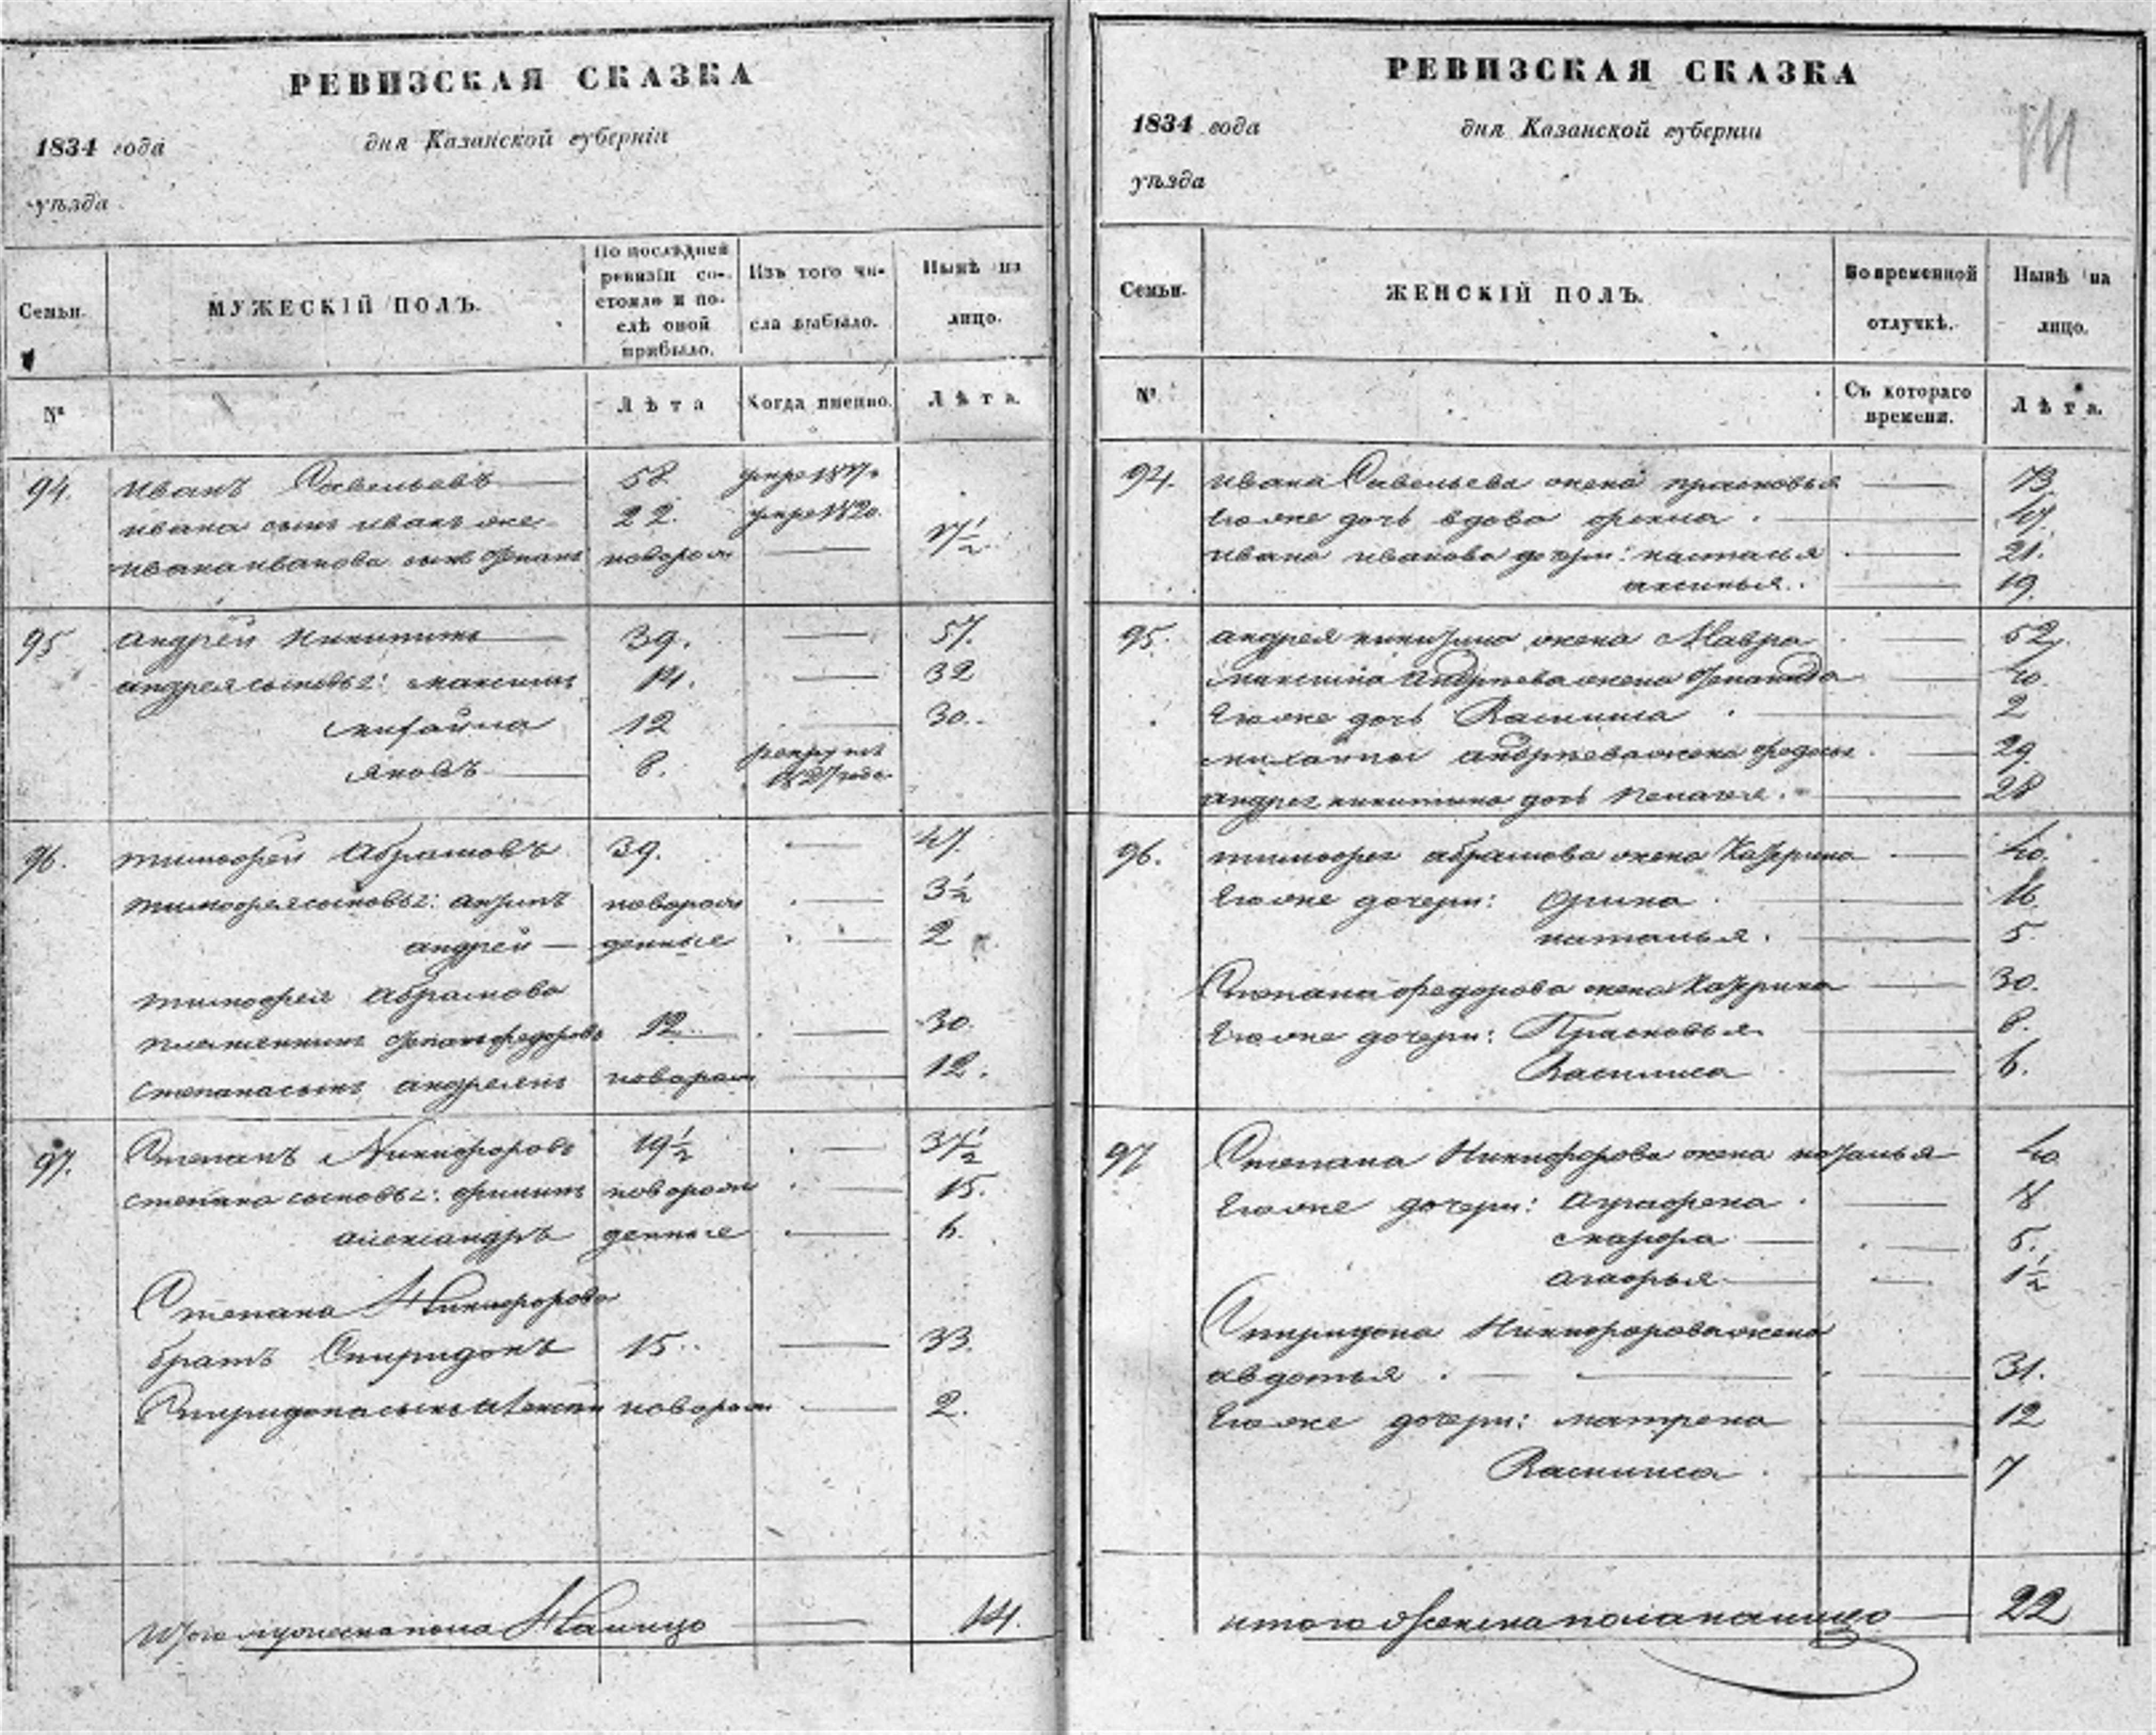 РЕВИЗСКАЯ СКАЗКА
1834 года дня Казанской губерніи
уѣзда
Семьи.
МУЖЕСКІЙ ПОЛЪ.
По послѣдней
ревизіи со-
стояло и по-
слѣ оной
прибыло.
Изъ того чи-
сла выбыло.
Нынѣ на
лицо.
№
Лѣта
Когда именно.
Лѣта.
94. Иванъ Савельевъ 58 умре 1827
ивана сынъ иванъ же 22. умре 1820.
ивана иванова сынъ новорож 17½
95 андрей Никитинъ 39. 57.
андрея сыновья: максимъ 14. 32
михайла 12 30.
яковъ 8. рекрутъ
1827 года
96. тимофей абрамовъ 39. 47.
тимофея сыновья: новорож 3½
андрей денные 2
тимофея абрамова
племянникъ федоровъ 12. 30.
степана сынъ андреянъ новорож 12.
97. Степанъ Никифоровъ 19½ 37½
степана сыновья: филипъ новорож 15.
александръ денные 6.
Степана Никифорова
братъ Спиридонъ 15. 33.
Спиридона сынъ новорож 2.
Итого мужеска пола На лицо 14.
РЕВИЗСКАЯ СКАЗКА
1834 года дня Казанской губерніи
уѣзда
Семьи.
ЖЕНСКІЙ ПОЛЪ.
Во временной
отлучкѣ.
Нынѣ на
лицо.
№
Съ котораго
времени.
Лѣта.
94. ивана Савельева жена прасковья 73
Ево же дочь вдова 47
ивана иванова дочери: настасья 21.
аксинья. 19.
95. андрея никитина жена Мавра 52.
максима андреева жена 40.
Ево же дочь Василиса 2
михайлы андреева жена федосья 29
андрея никитина дочь пелагея. 28
96. тимофея абрамова жена Катерина 40.
Ево же дочери: Орина 16.
наталья. 5.
Степана федорова жена Катерина 30.
Ево же дочери: Прасковья 8.
Василиса 6.
97 Степана Никифорова жена наталья 40
Ево же дочери: аграфена 18
5.
агафья 1½
Спиридона Никифорова жена
авдотья 31.
Ево же дочери: матрена 12
Василиса 7
итого женска пола на лицо 22